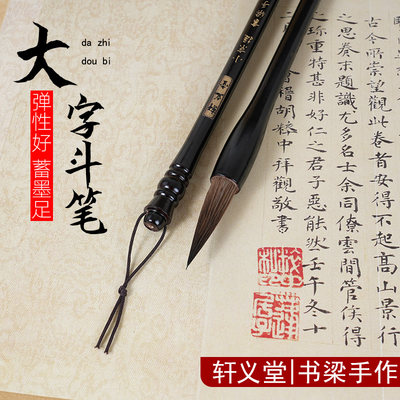 大字斗笔
da zhi
dou bi
弹性好 蓄墨足
古今所崇望觀此卷首安得不起高山景行
之思卷末題識尤多名士余同僚雲間管俟得
之珎重特甚非好仁之君子惡能然壬午冬十
會稽胡粹中拜觀敬書
轩义堂|书梁手作